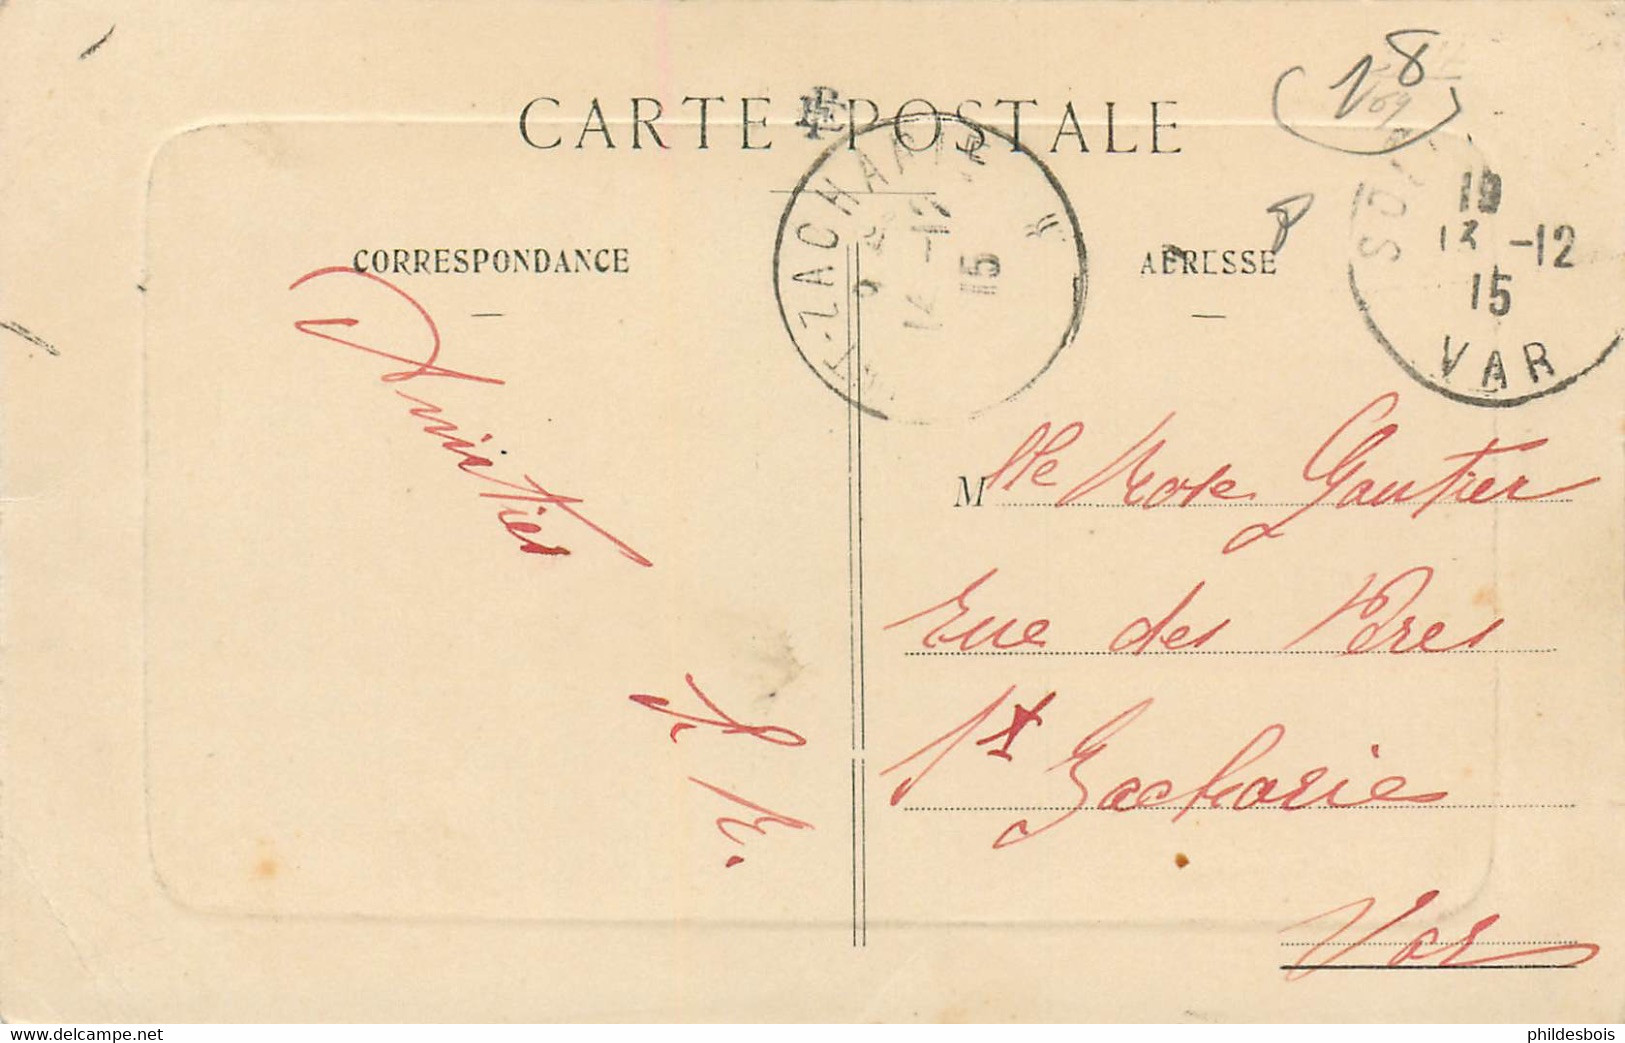 CARTE POSTALE
CORRESPONDANCE
ADRESSE
ST-ZACHARIE
14 -12
15
19
13 -12
15
VAR
Amitiés
Mlle Rose Gautier
Rue des Pères
St Zacharie
Var
www.delcampe.net
phildesbois